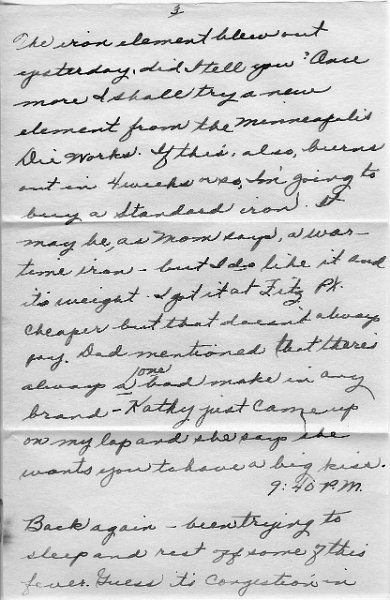 3
The iron element blew out
yesterday, did I tell you? Once
more I shall try a new
element from the Minneapolis
Die Works. If this, also, burns
out in 4 weeks or so, I'm going to
buy a Standard iron. It
may be, as Mom says, a war-
time iron - but I do like it and
it's weight. I got it at Fitz Pk.
cheaper but that doesn't always
pay. Dad mentioned that there's
always a one bad make in any
brand - Kathy just came up
on my lap and she says she
wants you to have a big kiss.
9:40 P.M.
Back again - been trying to
sleep and rest off some of this
fever. Guess it's congestion in